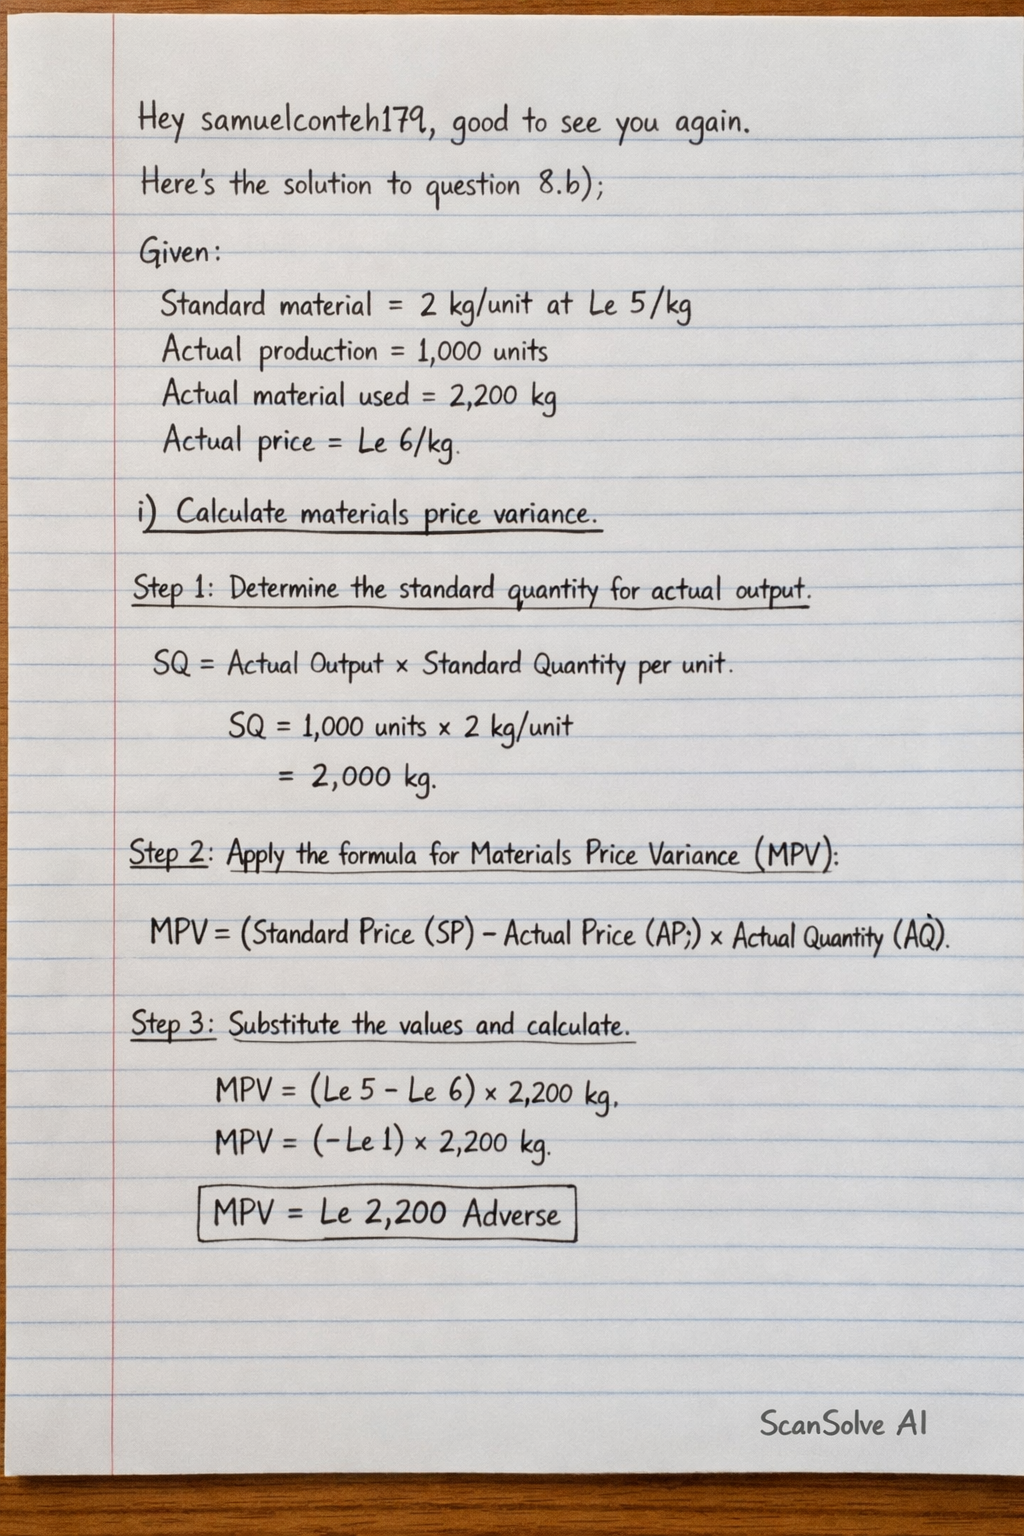 Hey samuelconteh179, good to see you again.
Here's the solution to question 8.b);
Given:
Standard material = 2 kg/unit at Le 5/kg
Actual production = 1,000 units
Actual material used = 2,200 kg
Actual price = Le 6/kg.
i) Calculate materials price variance.
Step 1: Determine the standard quantity for actual output.
SQ = Actual Output × Standard Quantity per unit.
SQ = 1,000 units × 2 kg/unit
= 2,000 kg.
Step 2: Apply the formula for Materials Price Variance (MPV):
MPV = (Standard Price (SP) – Actual Price (AP;) × Actual Quantity (AQ̇).
Step 3: Substitute the values and calculate.
MPV = (Le 5 – Le 6) × 2,200 kg.
MPV = (–Le 1) × 2,200 kg.
MPV = Le 2,200 Adverse
ScanSolve AI